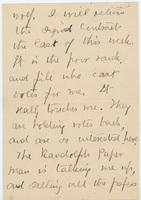 wolf. I will return
the signed contract
the last of this week.
It is the poor rank
and file who cast
votes for me. It
really touches me. They
are holding votes back,
and are so interested here.
The Randolph Paper
man is talking me up,
and calling all the papers